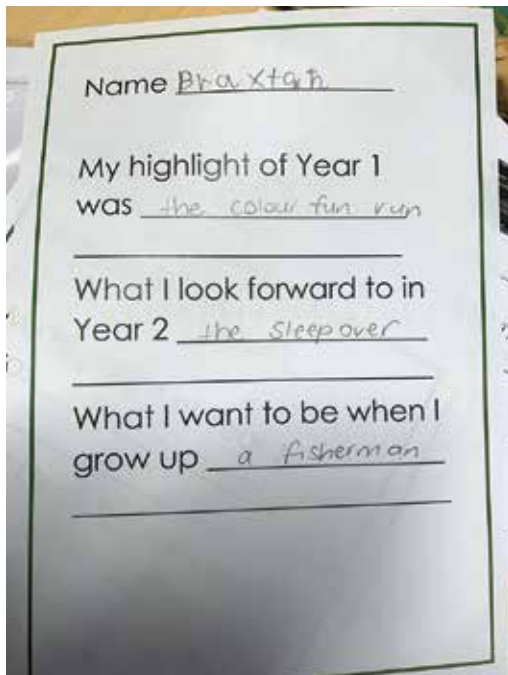 Name Braxtan
My highlight of Year 1
was the colour fun run
What I look forward to in
Year 2 the sleepover
What I want to be when I
grow up a fisherman